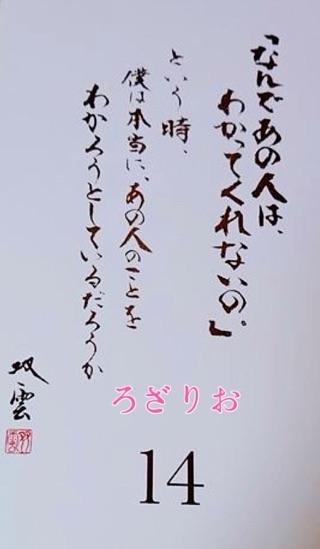 「なんであの人は、
わかってくれないの。」
という時、
僕は本当に、あの人のことを
わかろうとしているだろうか
双雲
ろざりお
14